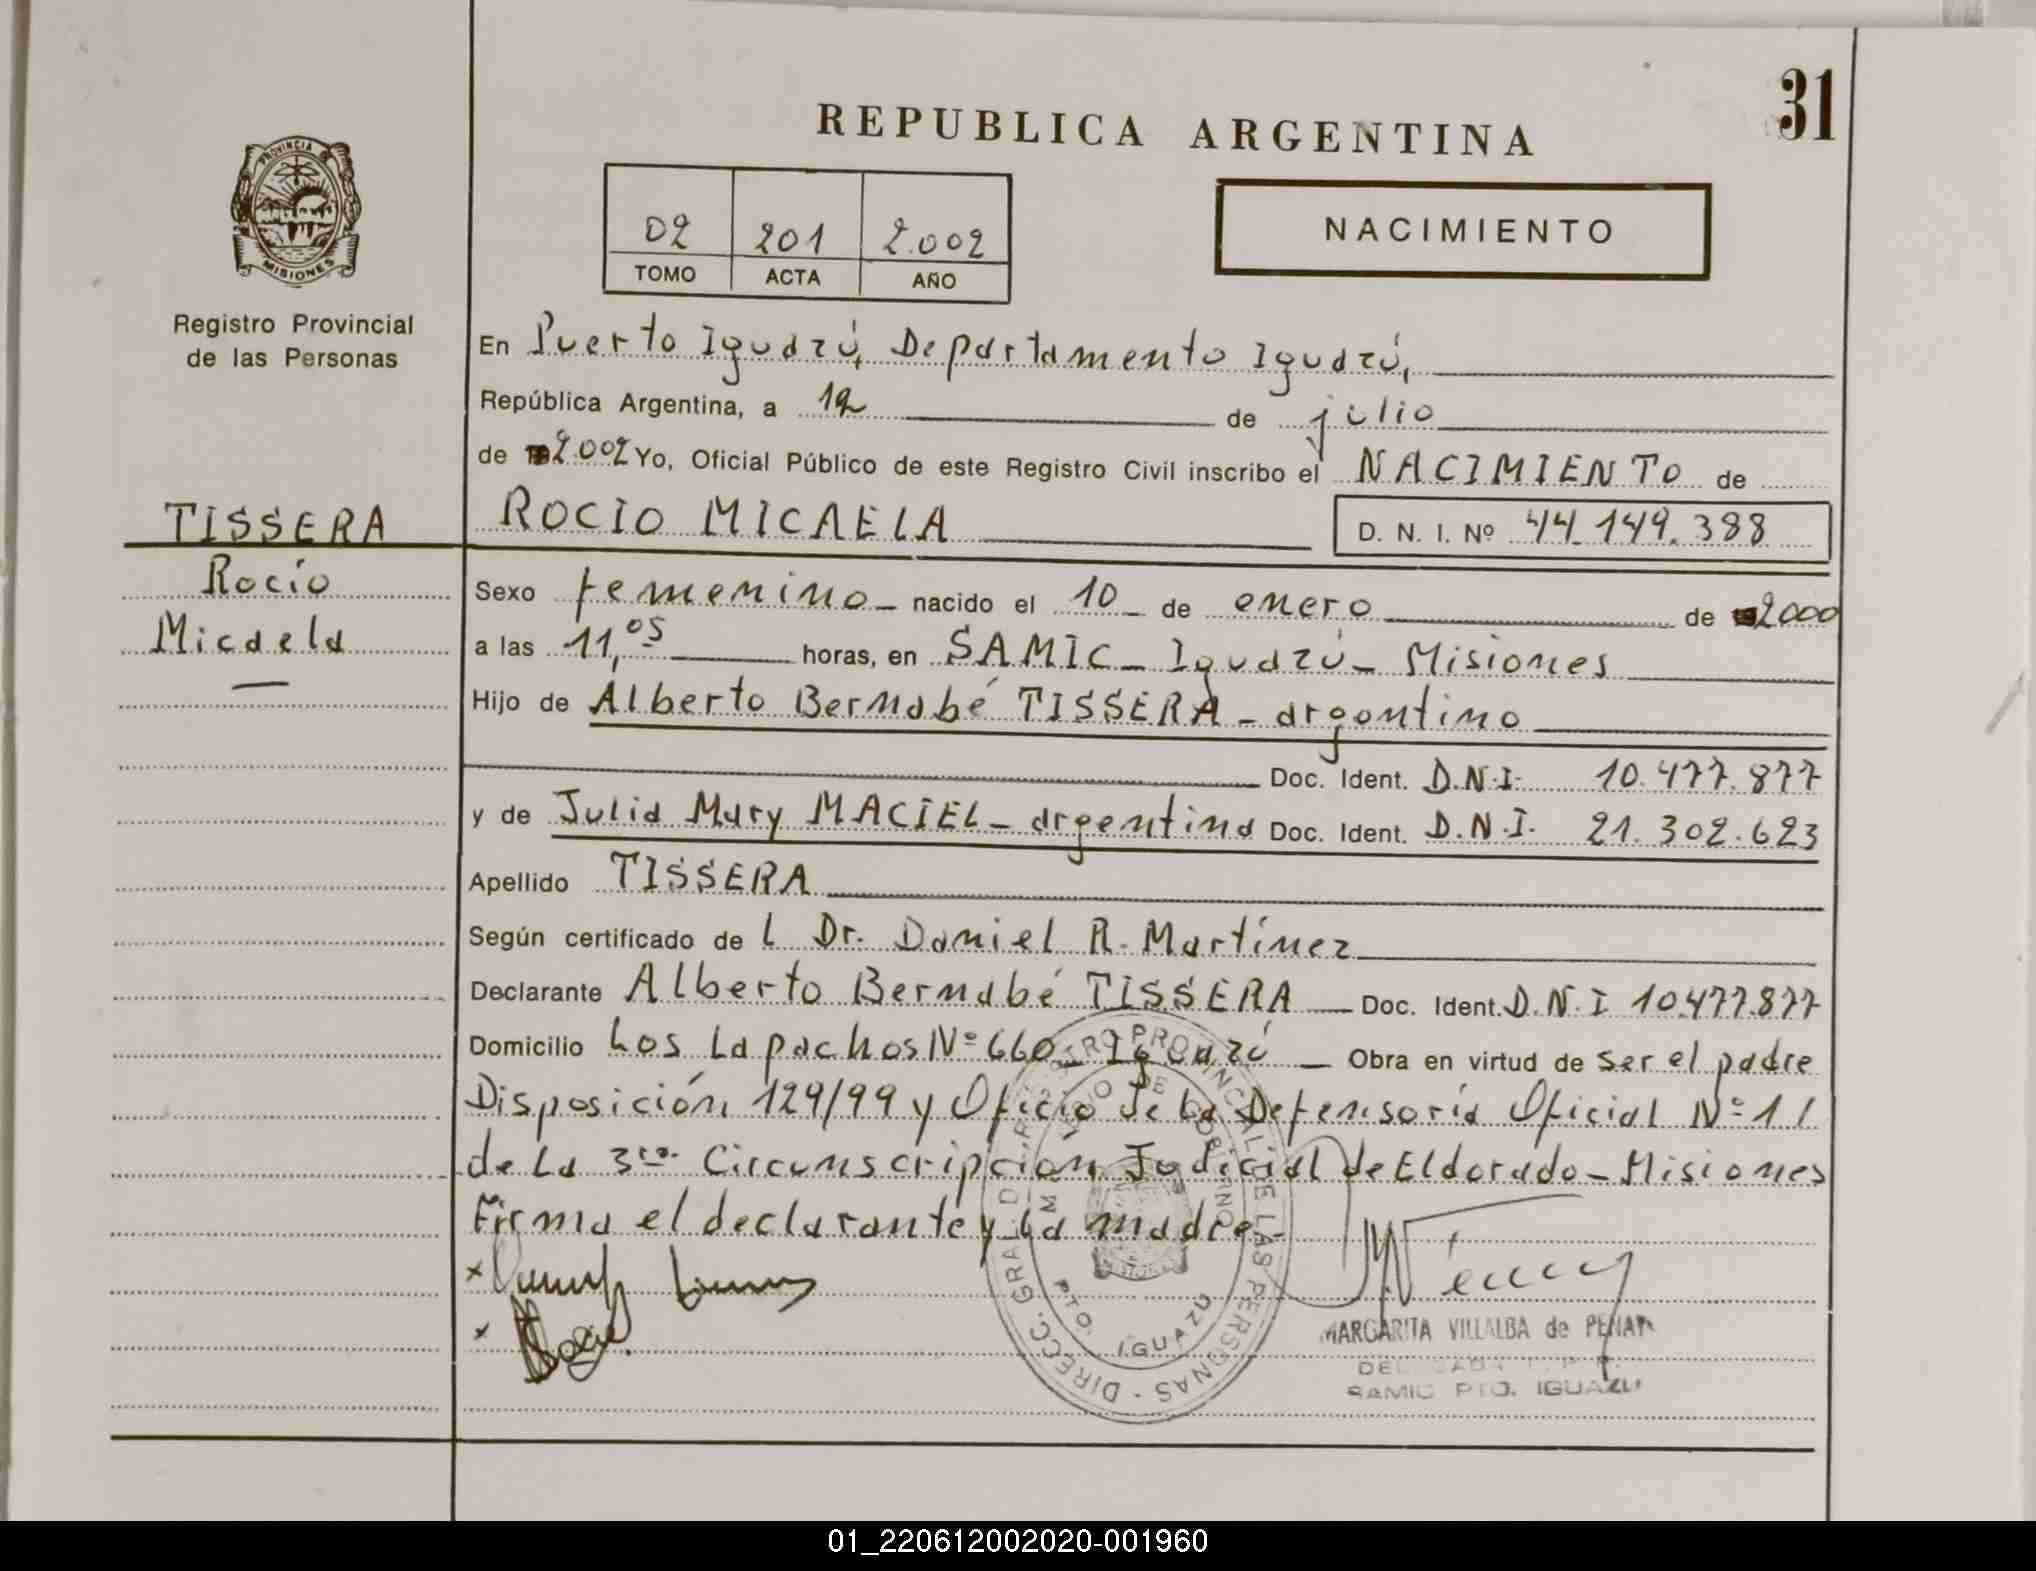 31
REPUBLICA ARGENTINA
PROVINCIA DE
MISIONES
Registro Provincial
de las Personas
02 201 2.002
TOMO ACTA AÑO
NACIMIENTO
En Puerto Iguazú, Departamento Iguazú,
República Argentina, a 12 de julio
de 2.002 Yo, Oficial Público de este Registro Civil inscribo el NACIMIENTO de
ROCIO MICAELA D. N. I. Nº 44.149.388
TISSERA
Rocío
Micaela
Sexo femenino nacido el 10 de enero de 2000
a las 11,05 horas, en SAMIC - Iguazú - Misiones
Hijo de Alberto Bernabé TISSERA - argentino
Doc. Ident. D.N.I. 10.477.877
y de Julia Mary MACIEL - argentina Doc. Ident. D.N.I. 21.302.623
Apellido TISSERA
Según certificado de l Dr. Daniel R. Martínez
Declarante Alberto Bernabé TISSERA Doc. Ident. D.N.I 10.477.877
Domicilio Los Lapachos Nº 660 - Iguazú - Obra en virtud de ser el padre
Disposición 129/99 y Oficio de la Defensoría Oficial Nº 1 /
de la 3ra. Circunscripción Judicial de Eldorado - Misiones
Firma el declarante y la madre.
x
x
DIRECC. GRAL. D. REGISTRO PROVINCIAL DE LAS PERSONAS
MINISTERIO DE GOBIERNO
PTO. IGUAZU
MARGARITA VILLALBA de
SAMIC PTO. IGUAZU
01_220612002020-001960